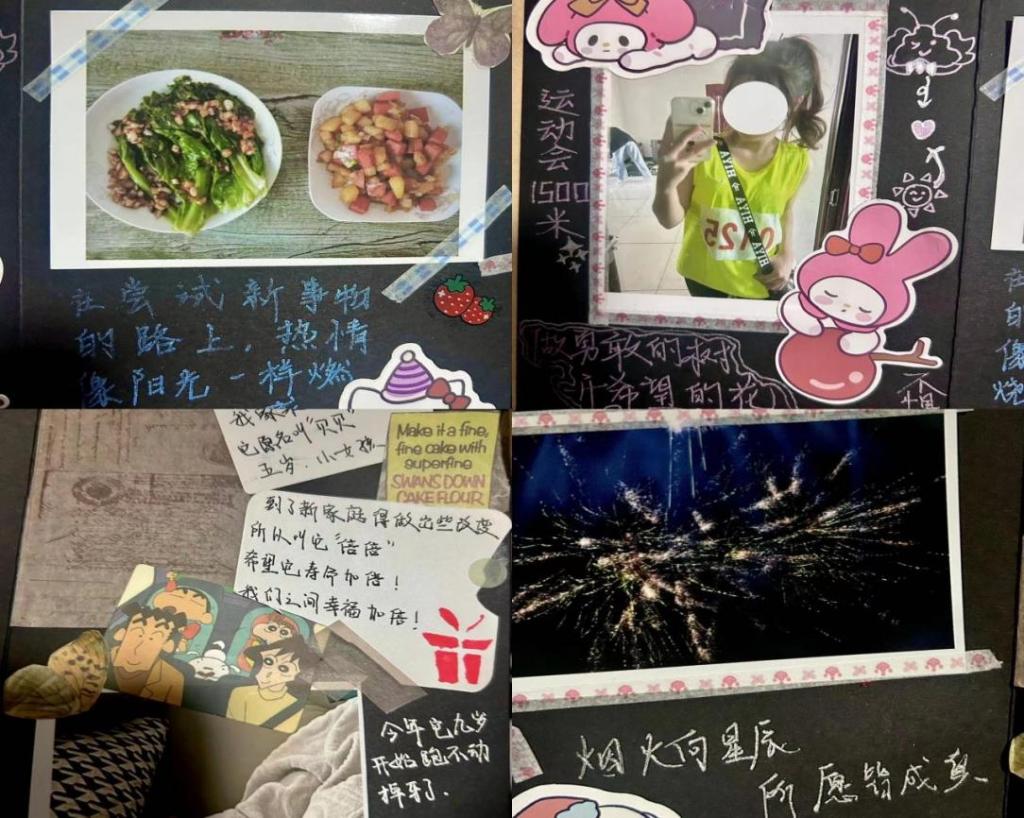 在尝试新事物
的路上，热情
像阳光一样燃
运动会
1500
米
做勇敢的树
开希望的花
它原名叫"贝贝"
五岁. 小女孩
Make it a fine,
fine cake with
superfine
SWANS DOWN
CAKE FLOUR
到了新家庭得做出些改变
所以叫它"倍倍"
希望它寿命加倍！
我们之间幸福加倍！
今年它九岁
开始跑不动
掉牙了.
烟火向星辰
所愿皆成真